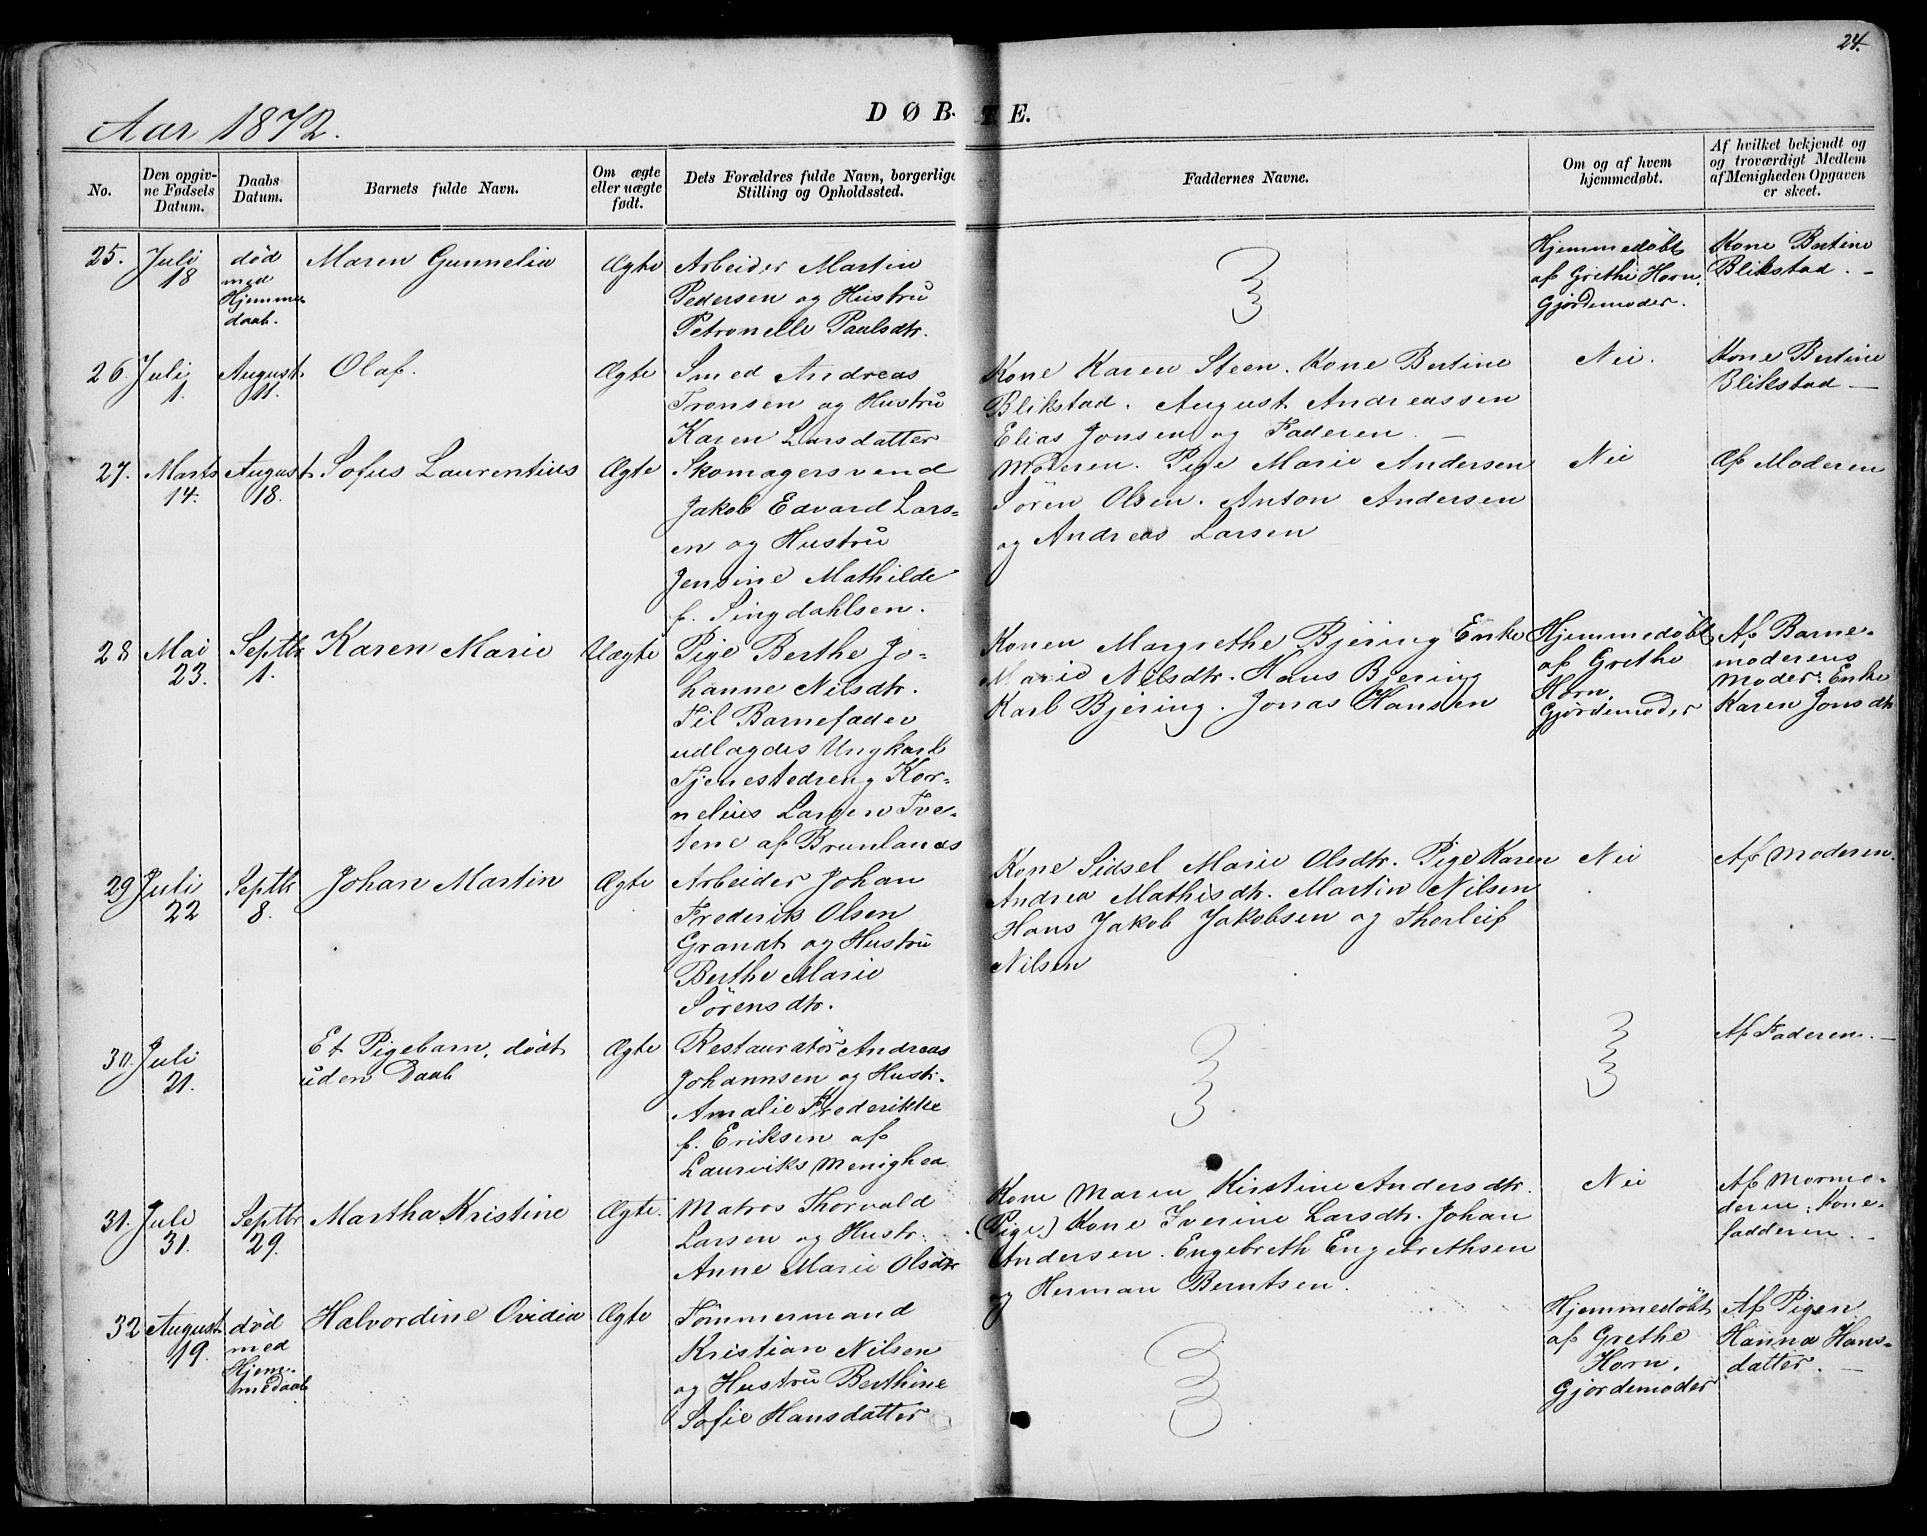 24.
Aar 1872.
DØBTE.
No.
Den opgiv-
ne Fødsels
Datum.
Daabs
Datum.
Barnets fulde Navn.
Om ægte
eller uægte
født.
Dets Forældres fulde Navn, borgerlige
Stilling og Opholdssted.
Faddernes Navne.
Om og af hvem
hjemmedøbt.
Af hvilket bekjendt og
og troværdigt Medlem
af Menigheden Opgaven
er skeet.
25.
Juli
18
død
med
Hjemme
daab.
Maren Gunnelia
Ægte
Arbeider Martin
Pedersen og Hustru
Petronelle Paulsdtr.
Hjemmedøbt
af Grethe Horn,
Gjordemoder.
Kone Bertine
Blikstad. -
26.
Juli
1.
August
11.
Olaf.
Ægte
Smed Andreas
Tronsen og Hustru
Karen Larsdatter
Kone Karen Steen. Kone Bertine
Blikstad. August Andreassen
Elias Jonsen og Faderen. -
Nei.
Kone Bertine
Blikstad -
27.
Marts
14.
August
18.
Sofus Laurentius
Ægte
Skomagersvend
Jakob Edvard Lars-
en og Hustru
Jensine Mathilde
f. Singdahlsen.
Moderen. Pige Marie Andersen
Sören Olsen. Anton Andersen
og Andreas Larsen
Nei
Af Moderen
28
Mai
23.
Septbr
1.
Karen Marie
Uægte
Pige Berthe Jo-
hanne Nilsdtr.
Til Barnefader
udlagdes Ungkarl
Tjenestedreng Kor-
nelius Larsen Tve-
tene af Brunlanæs
Konen Margrethe Bjering Enke
Marie Nilsdtr. Hans Bjering
Karl Bjering. Jonas Hansen
Hjemmedøbt
af Grethe
Horn,
Gjordemoder
Af Barne-
moderens
Moder: Enke
Karen Jonsdtr
29
Juli
22
Septbr
8.
Johan Martin
Ægte
Arbeider Johan
Frederik Olsen
Grandt og Hustru
Berthe Marie
Sörensdtr.
Kone Sidsel Marie Olsdtr. Pige Karen
Andrea Mathisdtr. Martin Nilsen
Hans Jakob Jakobsen og Thorleif
Nilsen
Nei
Af Moderen.
30.
Juli
21.
Et Pigebarn, dødt
uden Daab
Ægte
Restauratör Andreas
Johannsen og Hustr.
Amalie Frederikke
f. Eriksen af
Laurviks Menighed
Af Faderen. -
31.
Juli
31.
Septbr
29.
Martha Kristine
Ægte.
Matros Thorvald
Larsen og Hustr.
Anne Marie Olsdtr
Kone Maren Kirstine Andersdtr.
(Pige) Kone Iverine Larsdtr. Johan
Andersen. Engebreth Engebrethsen
og Herman Berntsen.
Nei
Af Mormo-
deren: Kone-
fadderen. -
32
August
19.
død
med
Hjem-
medaab
Halvordine Ovidia
Ægte
Tömmermand
Kristian Nilsen
og Hustru Berthine
Sofie Hansdatter
Hjemmedøbt
af Grethe
Horn,
Gjordemoder
Af Pigen
Hanna Hans-
datter. -